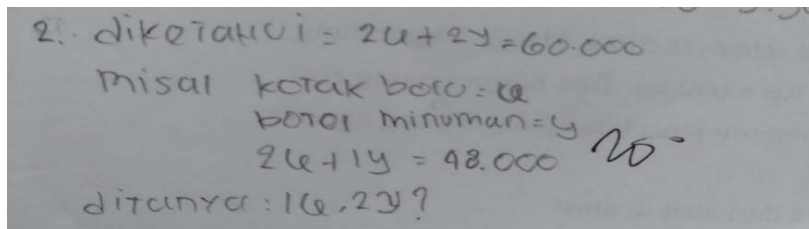 2. diketahui = 2x+2y=60.000
misal kotak bolu = x
botol minuman = y
2x+1y = 48.000 20
ditanya : 1x.2y?